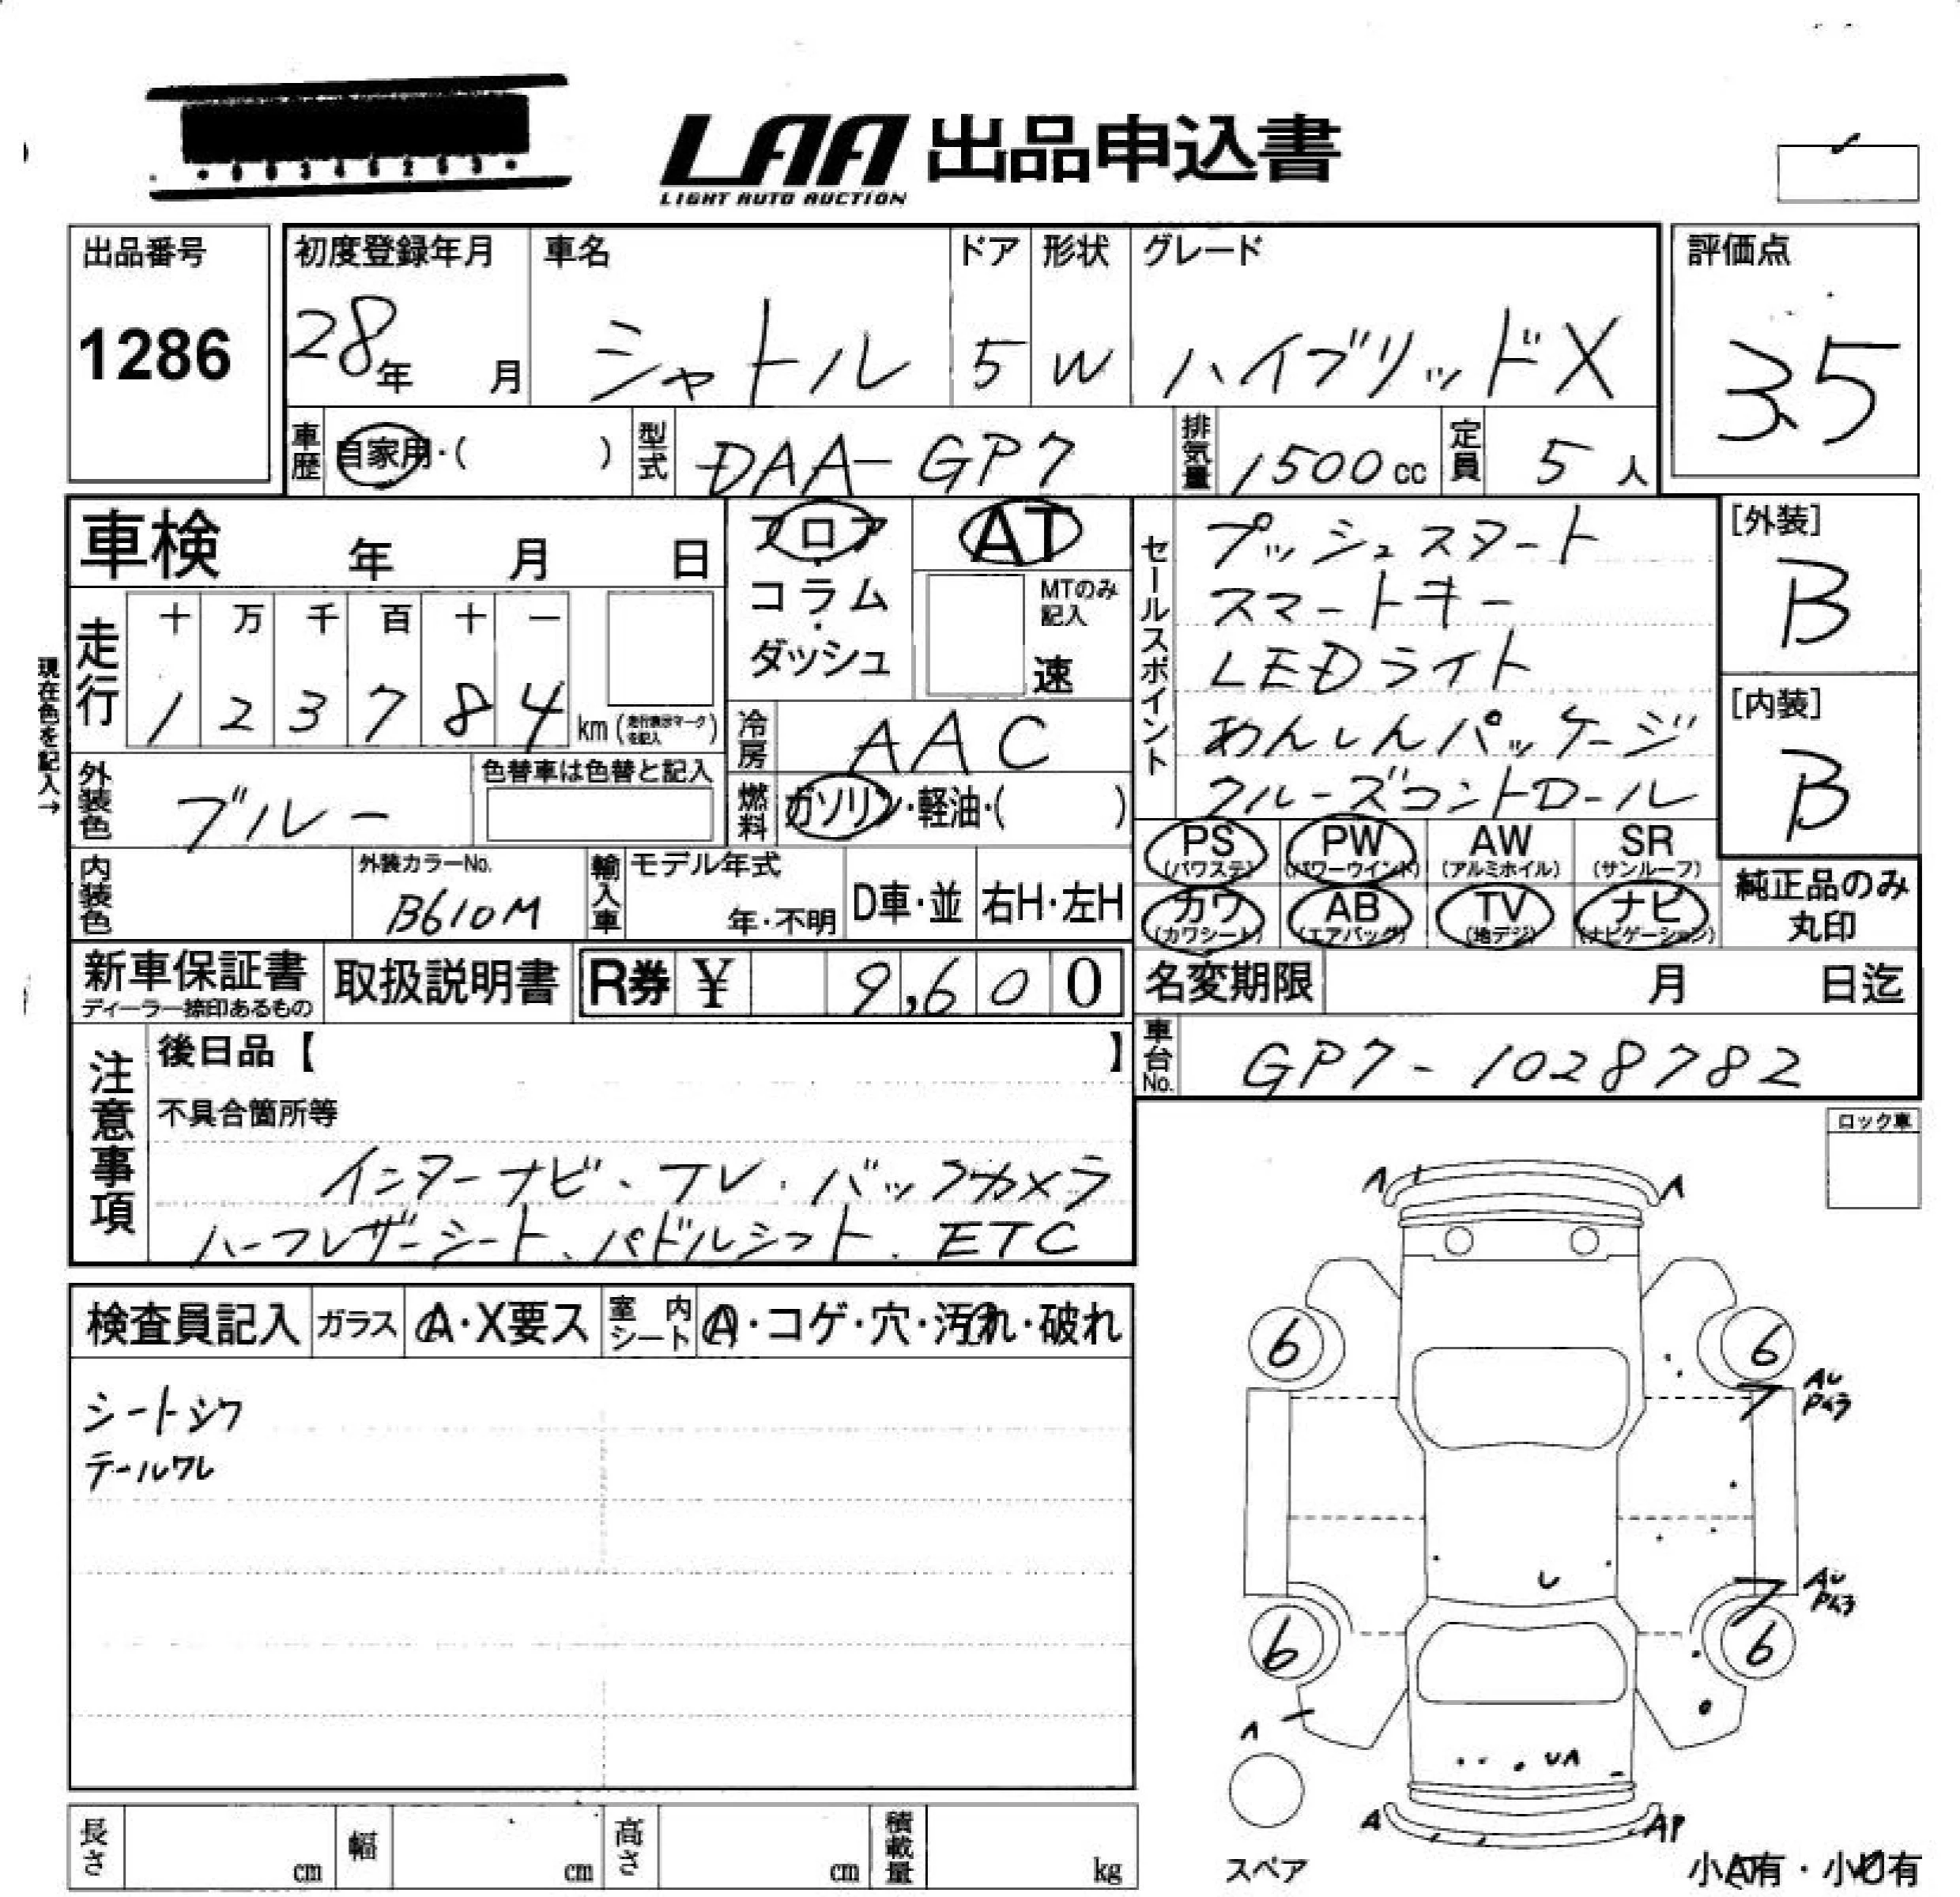 LAA 出品申込書
LIGHT AUTO AUCTION
出品番号
1286
初度登録年月
28年 月
車名
シャトル
ドア
5
形状
W
グレード
ハイブリッドX
評価点
3.5
車歴
自家用・( )
型式
DAA-GP7
排気量
1500cc
定員
5人
車検 年 月 日
フロア
コラム
ダッシュ
AT
MTのみ
記入
速
セールスポイント
プッシュスタート
スマートキー
LEDライト
あんしんパッケージ
クルーズコントロール
[外装]
B
[内装]
B
現在色を記入→
走行
十 万 千 百 十 一
1 2 3 7 8 4 km (走行表示マークを記入)
冷房
AAC
外装色
ブルー
色替車は色替と記入
燃料
ガソリン・軽油・( )
PS (パワステ)
PW (パワーウインド)
AW (アルミホイル)
SR (サンルーフ)
カワ (カワシート)
AB (エアバッグ)
TV (地デジ)
ナビ (ナビゲーション)
純正品のみ
丸印
内装色
外装カラーNo.
B610M
輸入車
モデル年式
年・不明
D車・並
右H・左H
新車保証書
ディーラー捺印あるもの
取扱説明書
R券 ¥ 9,600
名変期限 月 日迄
車台No.
GP7-1028782
注意事項
後日品【 】
不具合箇所等
インターナビ、TV、バックカメラ
ハーフレザーシート、パドルシフト、ETC
ロック車
検査員記入
ガラス
A・X要ス
室内シート
A・コゲ・穴・汚れ・破れ
シートシワ
テールワレ
A A
6 6
AU
6 6
U
AU
A
UA
A AP
スペア
小A有・小U有
長さ cm
幅 cm
高さ cm
積載量 kg